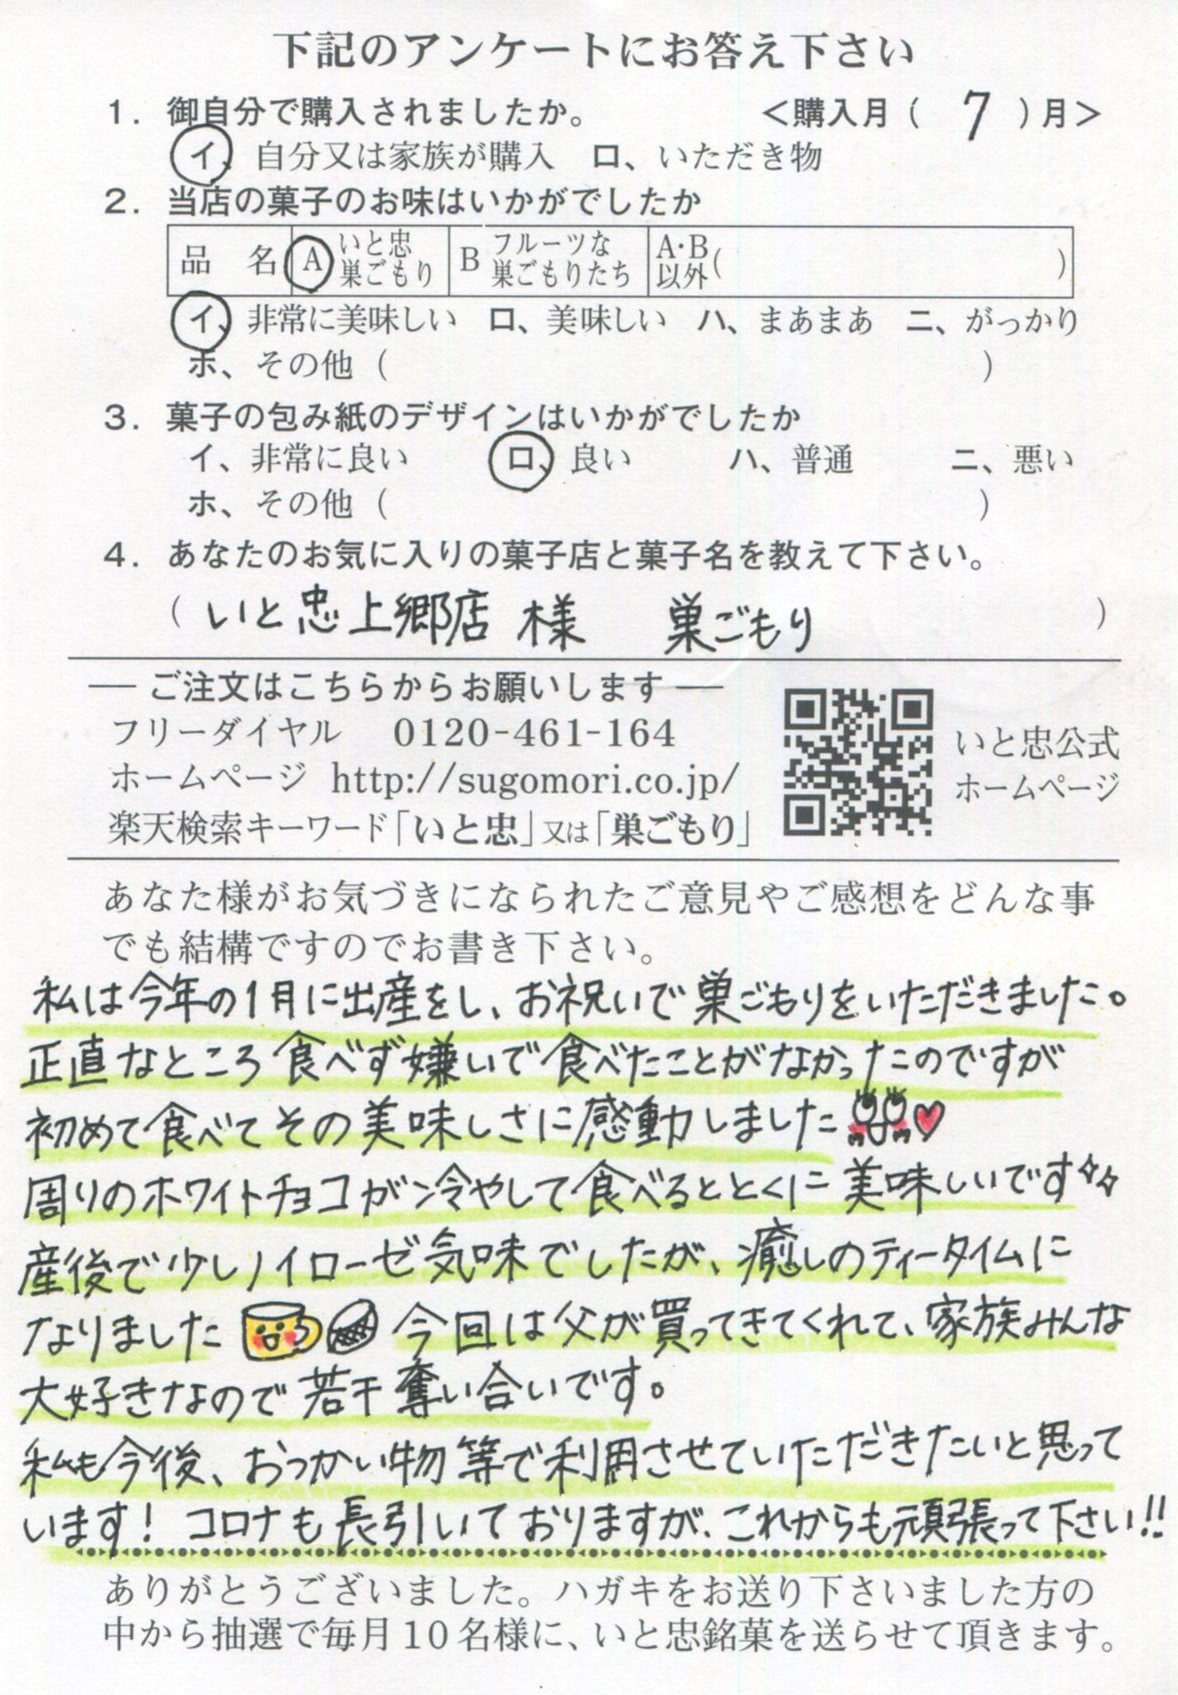 下記のアンケートにお答え下さい
1. 御自分で購入されましたか。 <購入月( 7 )月>
イ、自分又は家族が購入 ロ、いただき物
2. 当店の菓子のお味はいかがでしたか
品 名 A いと忠 巣ごもり B フルーツな 巣ごもりたち A・B 以外( )
イ、非常に美味しい ロ、美味しい ハ、まあまあ ニ、がっかり
ホ、その他( )
3. 菓子の包み紙のデザインはいかがでしたか
イ、非常に良い ロ、良い ハ、普通 ニ、悪い
ホ、その他( )
4. あなたのお気に入りの菓子店と菓子名を教えて下さい。
( いと忠上郷店 様 巣ごもり )
― ご注文はこちらからお願いします ―
フリーダイヤル 0120-461-164
ホームページ http://sugomori.co.jp/
楽天検索キーワード「いと忠」又は「巣ごもり」
いと忠公式
ホームページ
あなた様がお気づきになられたご意見やご感想をどんな事
でも結構ですのでお書き下さい。
私は今年の1月に出産をし、お祝いで巣ごもりをいただきました。
正直なところ食べず嫌いで食べたことがなかったのですが
初めて食べてその美味しさに感動しました
周りのホワイトチョコが冷やして食べるととくに美味しいです
産後で少しノイローゼ気味でしたが、癒しのティータイムに
なりました 今回は父が買ってきてくれて、家族みんな
大好きなので若干奪い合いです。
私も今後、おつかい物等で利用させていただきたいと思って
います! コロナも長引いておりますが、これからも頑張って下さい!!
ありがとうございました。ハガキをお送り下さいました方の
中から抽選で毎月10名様に、いと忠銘菓を送らせて頂きます。